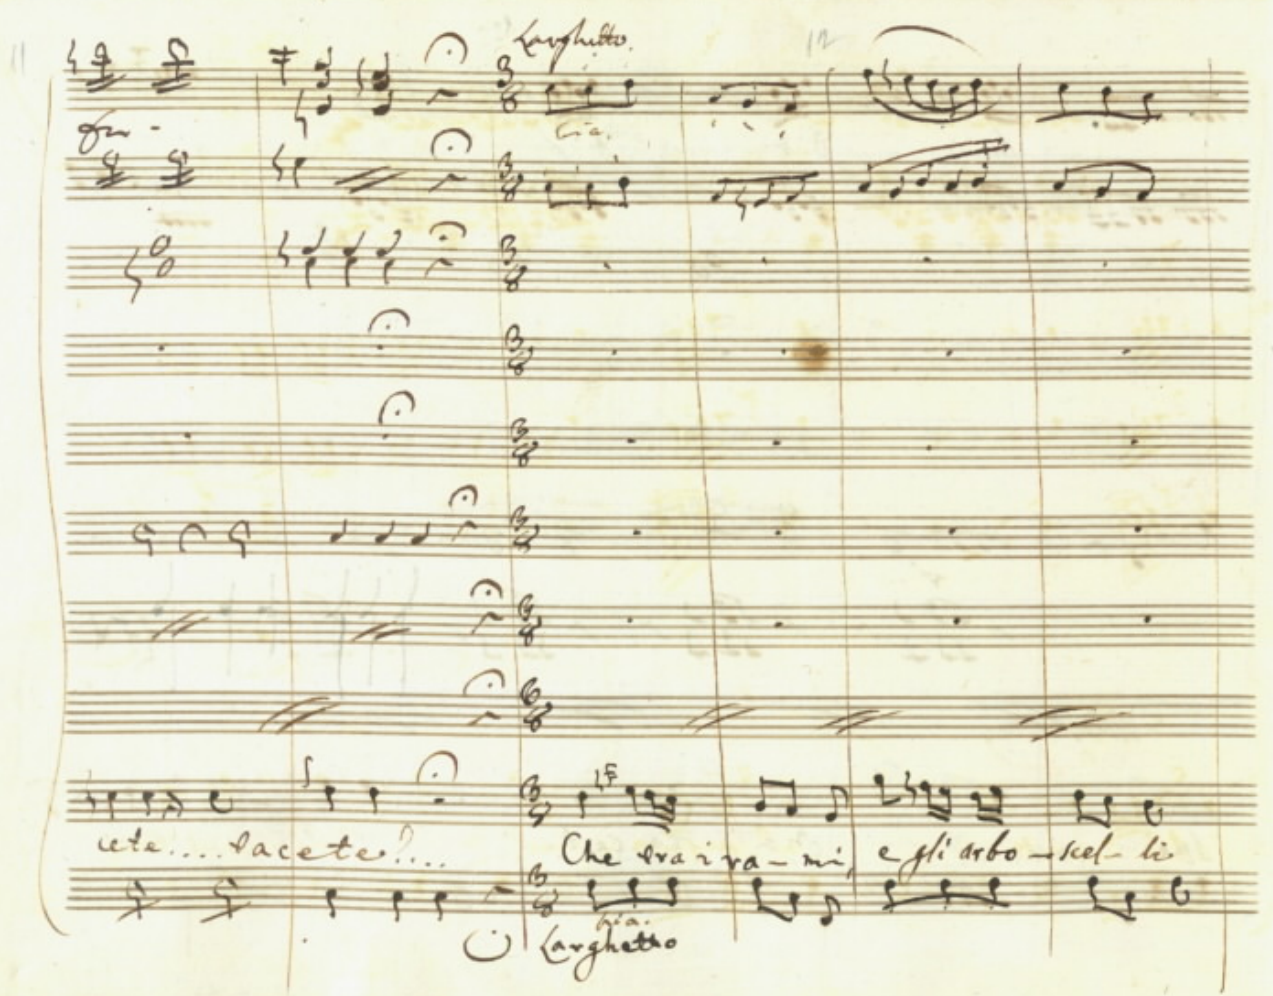 11
Larghetto.
12
cete.... tacete!....
Che tra i ra - mi, e gli arbo - scel - li
Larghetto